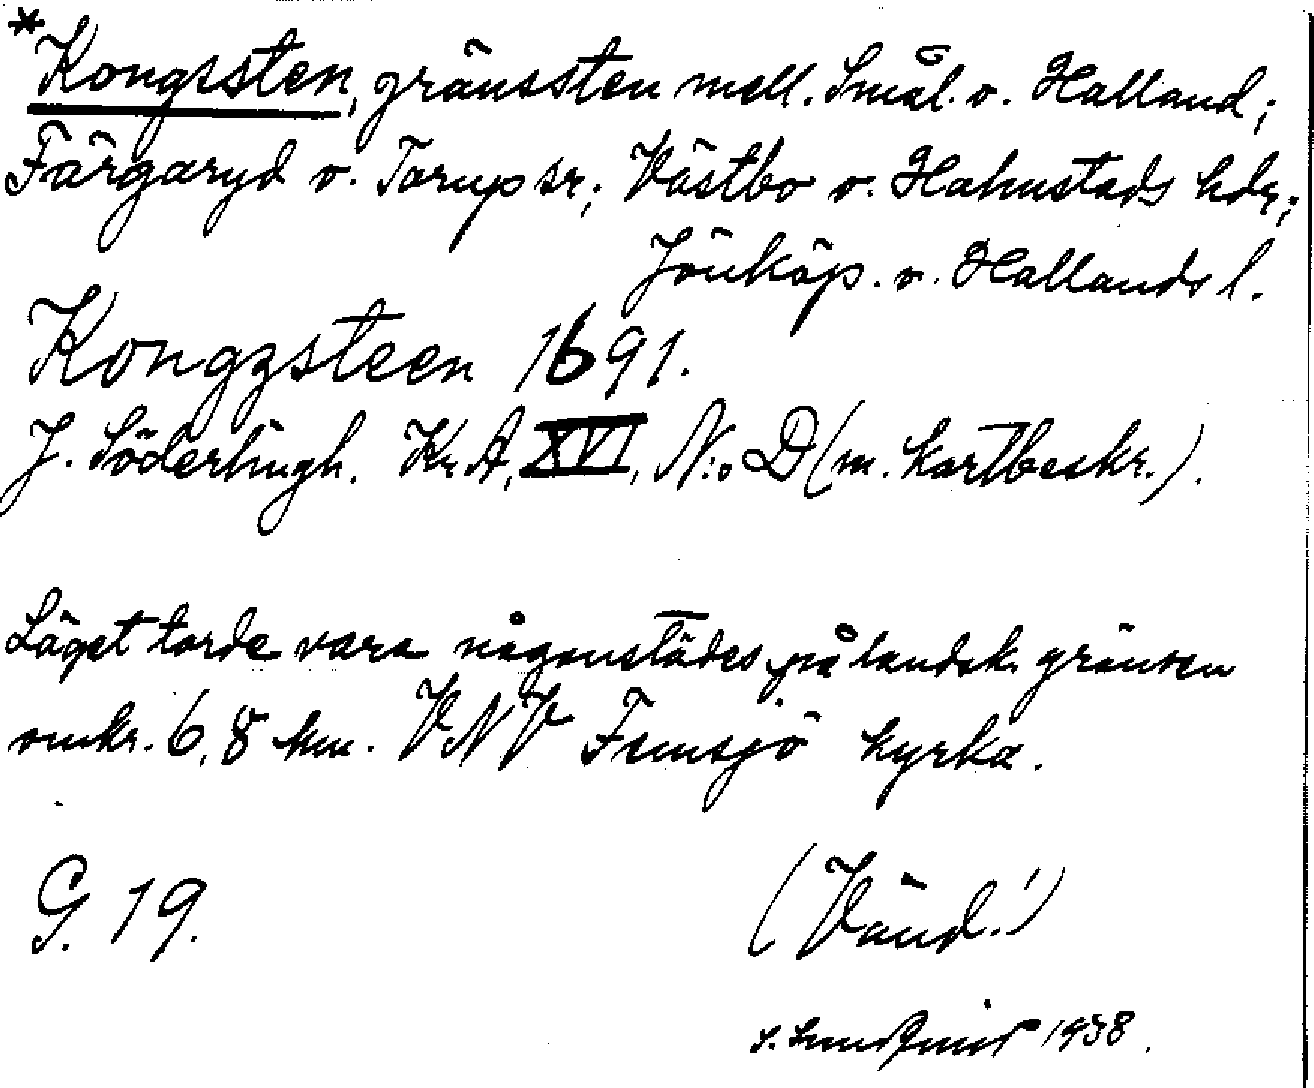 *Kongssten, gränssten mell. Smål. o. Halland;
Färgaryd o. Torup sr; Västbo o. Halmstads hdr;
Jönköp. o. Hallands l.
Kongzsteen 1691.
J. Söderlingh. Kr. A, XVI, N:o D (m. kartbeskr.).
Läget torde vara någonstädes på landsk. gränsen
omkr. 6,8 km. VNV Femsjö kyrka.
G. 19.
(Vänd!)
1938.